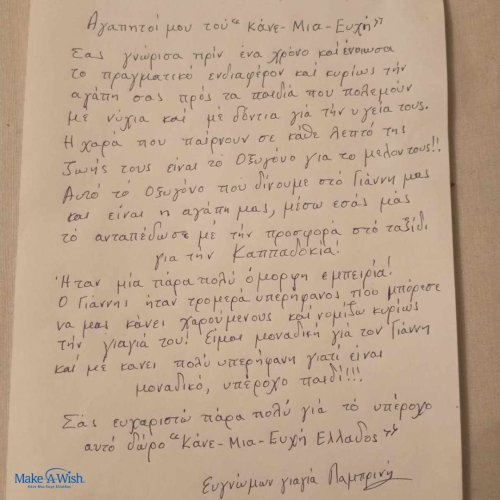 Αγαπητοί μου τού "Κάνε-Μια-Ευχή"
Σας γνώρισα πρίν ένα χρόνο καί ένοιωσα
το πραγματικό ενδιαφέρον καί κυρίως τήν
αγάπη σας πρός τα παιδιά που πολεμούν
με νύχια καί μέ δόντια γιά τήν υγεία τους.
Η χαρά που παίρνουν σε κάθε λεπτό της
ζωής τους είναι τό Οξυγόνο για το μέλλον τους!!
Αυτό τό Οξυγόνο πού δίνουμε στό Γιάννη μας
καί είναι η αγάπη μας, μέσω εσάς μάς
τό ανταπέδωσε μέ τήν προσφορά στό ταξίδι
για τήν Καππαδοκία!
Ήταν μία πάρα πολύ όμορφη εμπειρία!
Ο Γιάννης ήταν τρομερά υπερήφανος πού μπόρεσε
να μας κάνει χαρούμενους καί νομίζω κυρίως
τήν γιαγιά του! Είμαι μοναδική γιά τον Γιάννη
καί μέ κανει πολύ υπερήφανη γιατί είναι
μοναδικό, υπέροχο παιδί!!!
Σάς ευχαριστώ πάρα πολύ γιά τό υπέροχο
αυτό δώρο "Κάνε-Μια-Ευχή Ελλάδος"
Ευγνώμων γιαγιά Λαμπρινή
Make-A-Wish
Κάνε-Μια-Ευχή Ελλάδος